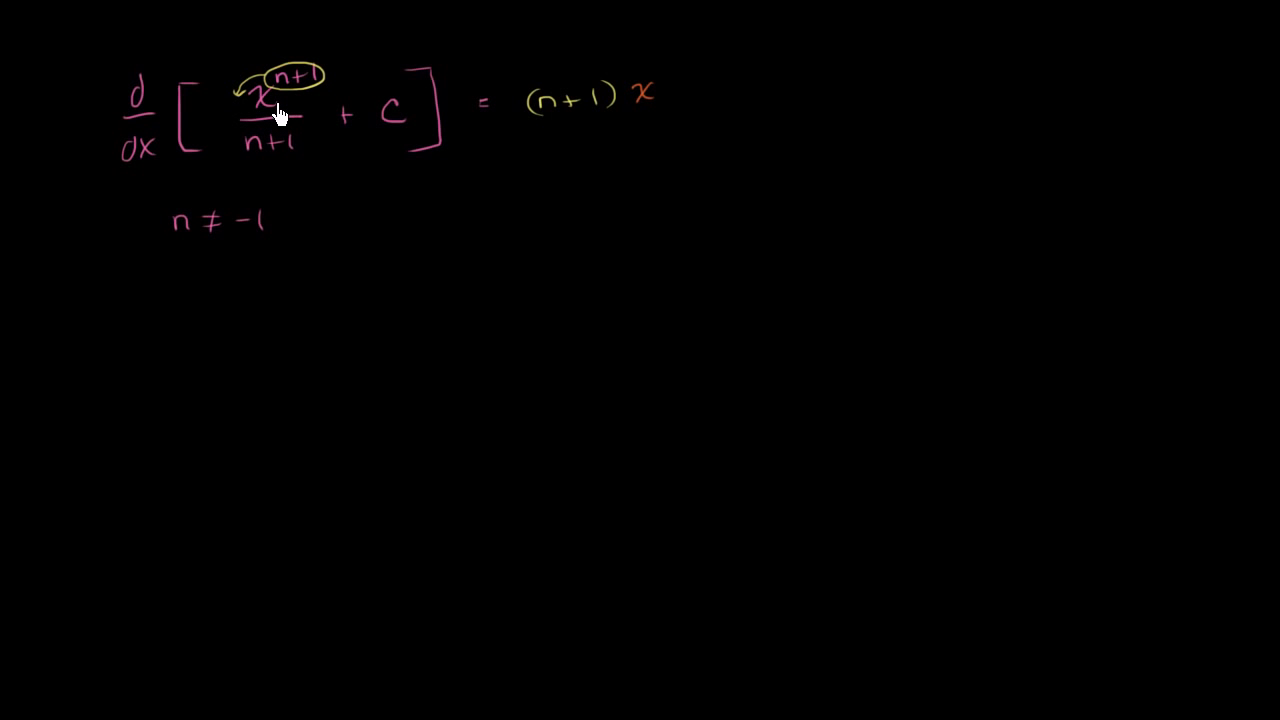 d/dx [ x^(n+1)/(n+1) + C ] = (n+1) x
n ≠ -1